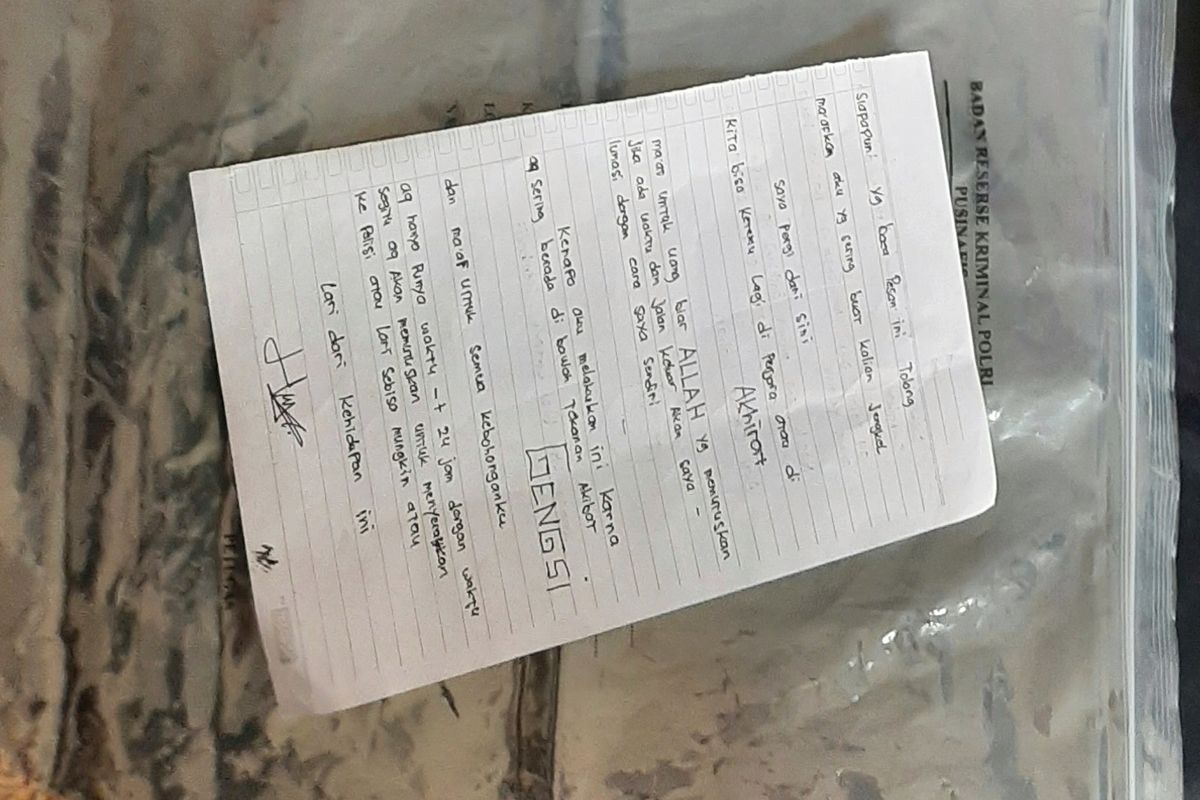 BADAN RESERSE KRIMINAL POLRI
siapapun yg baca Pesan ini Tolong
maafkan aku yg sering buat kalian Jengkel
saya pergi dari sini
Kita bisa ketemu lagi di penjara atau di
Akhirat
maaf untuk uang biar ALLAH yg memutuskan
Jika ada waktu dan jalan keluar Akan saya -
lunasi dengan cara saya sendiri
Kenapa aku melakukan ini karna
aq sering berada di bawah Tekanan Akibat
GENGSI
dan ma'af untuk semua kebohonganku
aq hanya Punya waktu -+ 24 jam dengan waktu
segitu aq Akan memutuskan untuk menyerahkan
ke Polisi atau lari sebisa mungkin atau
lari dari kehidupan ini